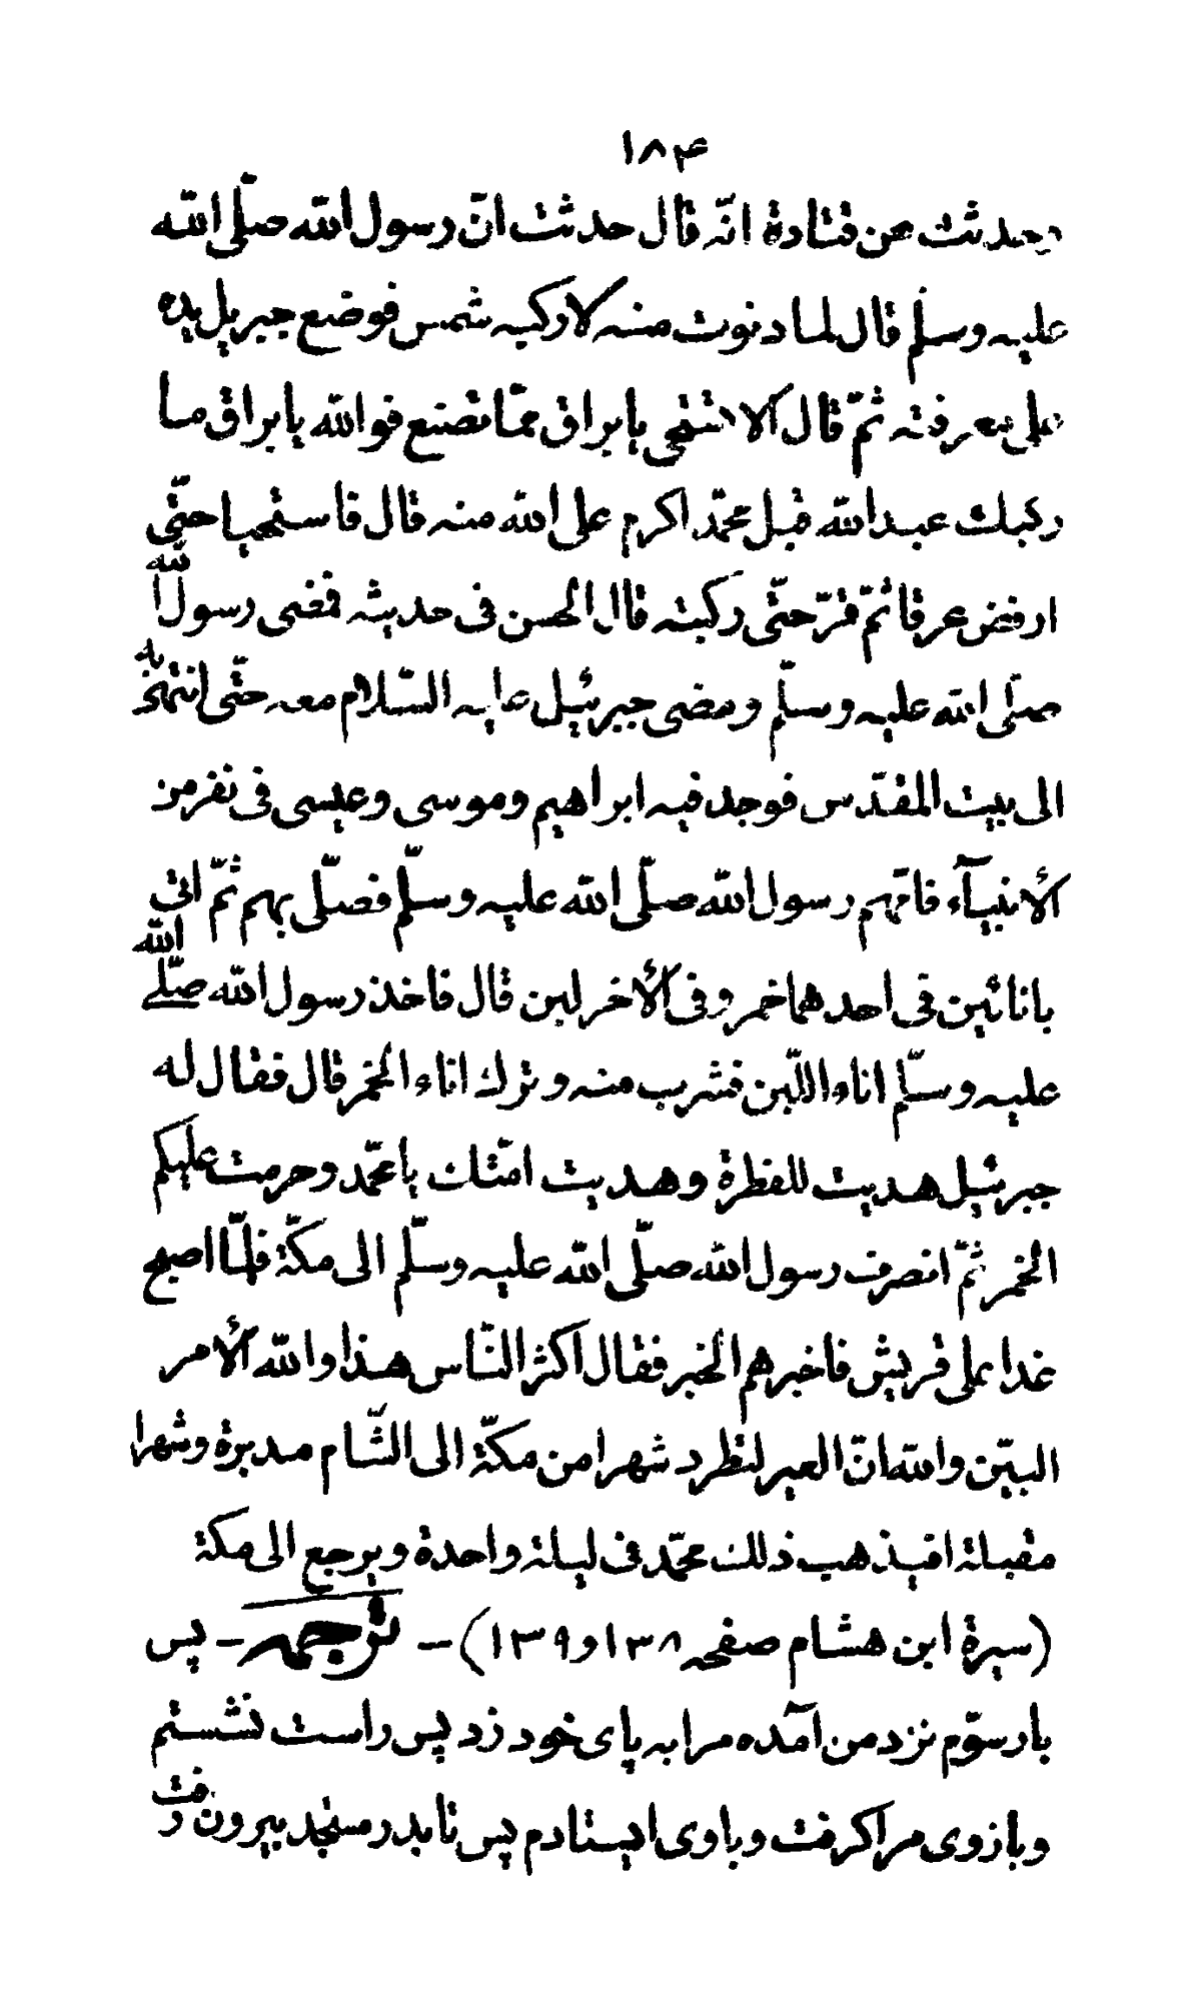 ۱۸۴
وحدثت عن قتادة انّه قال حدثت انّ رسول الله صلّى الله
عليه وسلّم قال لما دنوت منه لاركبه شمس فوضع جبريل يده
على معرفته ثمّ قال الا تستحى يا براق ممّا تصنع فوالله يا براق ما
ركبك عبد الله قبل محمّد اكرم على الله منه قال فاستحيا حتّى
ارفض عرقا ثمّ قرّ حتّى ركبته قال الحسن فى حديثه فمضى رسول الله
صلّى الله عليه وسلّم ومضى جبرئيل عليه السّلام معه حتّى انتهى به
الى بيت المقدّس فوجد فيه ابراهيم وموسى وعيسى فى نفر من
الأنبيآء فامّهم رسول الله صلّى الله عليه وسلّم فصلّى بهم ثمّ اتى
بانائين فى احدهما خمر وفى الأخر لبن قال فاخذ رسول الله صلّى الله
عليه وسلّم اناء اللّبن فشرب منه وترك اناء الخمر قال فقال له
جبرئيل هديت للفطرة وهديت امّتك يا محمّد وحرمت عليكم
الخمر ثمّ انصرف رسول الله صلّى الله عليه وسلّم الى مكّة فلمّا اصبح
غدا على قريش فاخبرهم الخبر فقال اكثر النّاس هذا والله الأمر
البيّن والله انّ العير لتطرد شهرا من مكّة الى الشّام مدبرة وشهرا
مقبلة افيذهب ذلك محمّد فى ليلة واحدة ويرجع الى مكة
(سيرة ابن هشام صفحه ۱۳۸ و ۱۳۹) – ترجمه – پس
بار سوّم نزد من آمده مرا به پاى خود زد پس راست نشستم
و بازوى مرا كرفت و باوى ايستادم پس تا بدر مسجد بيرون رفت و